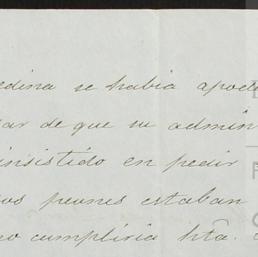 edina se habia apode
ar de que su admin
insistido en pedir
os peones estaban
no cumpliria hta.